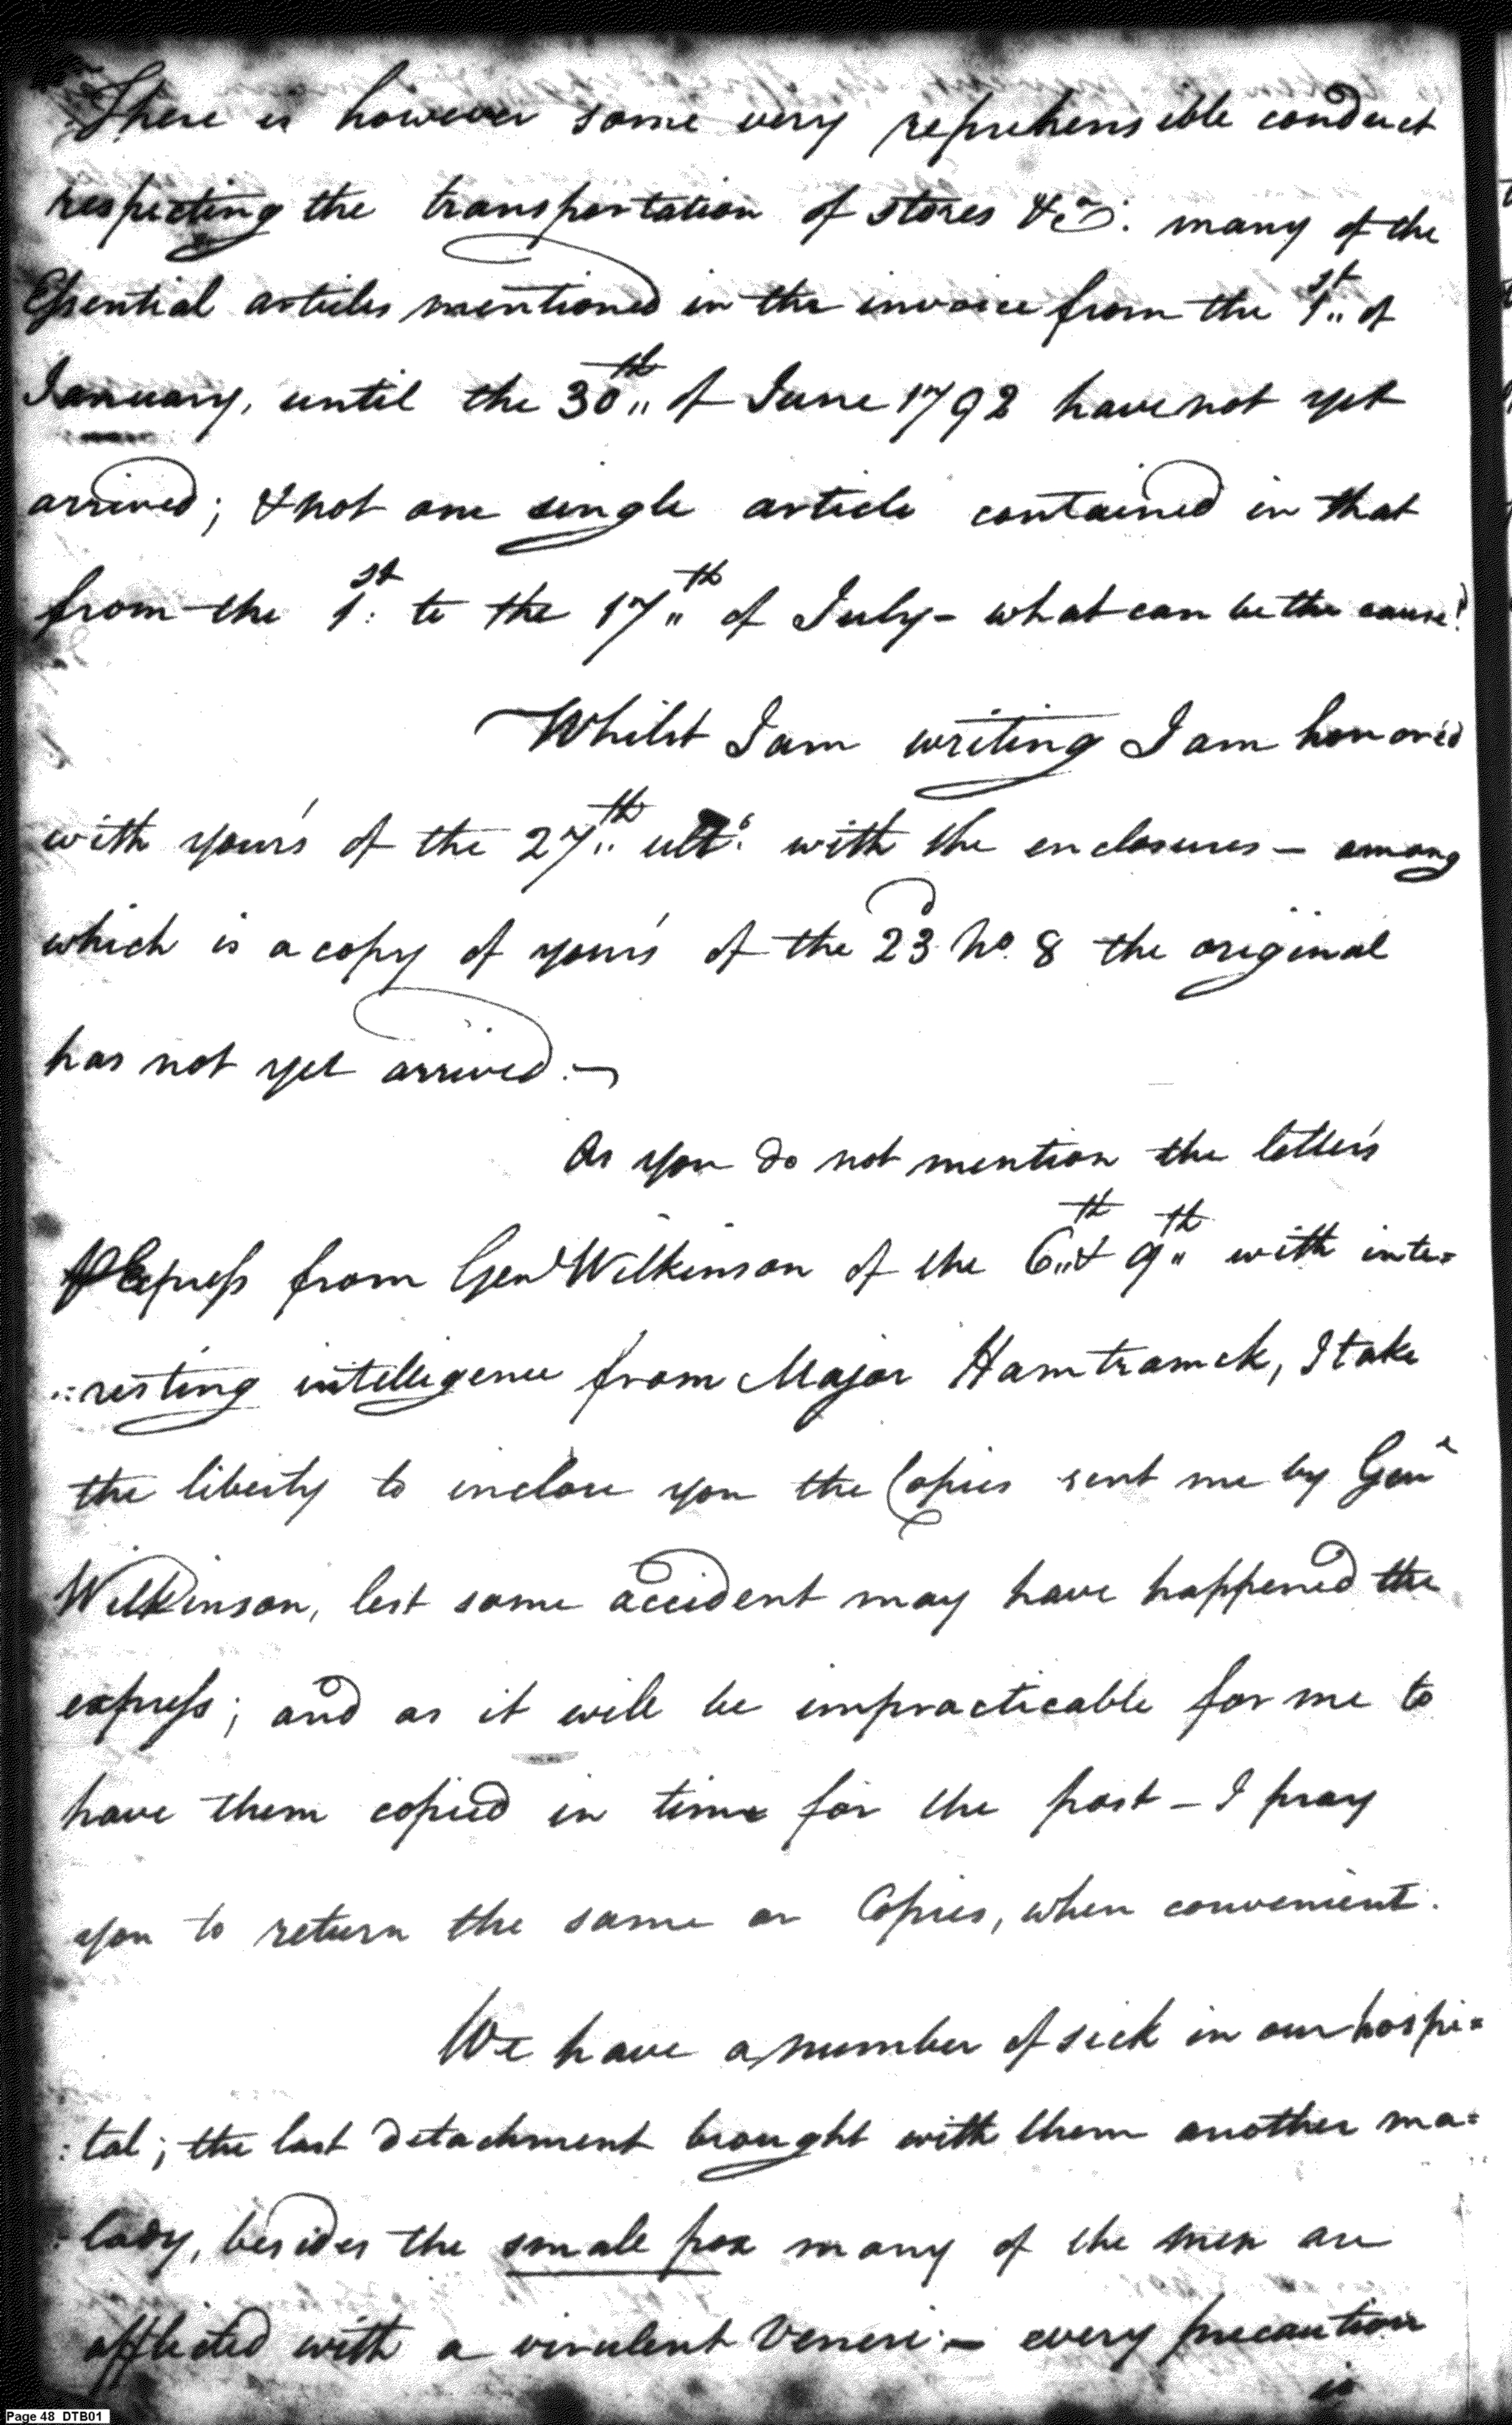 There is however some very reprehensible conduct
respecting the transportation of stores &c. many of the
Essential articles mentioned in the invoice from the 1st of
January, until the 30th of June 1792 have not yet
arrived; & not one single article contained in that
from the 1st to the 17th of July - what can be the cause?
Whilst I am writing I am honored
with your's of the 27th ulto. with the enclosures - among
which is a copy of your's of the 23d No. 8 the original
has not yet arrived. -
As you do not mention the letters
Express from Genl Wilkinson of the 6th & 9th with inte=
:resting intelligence from Major Hamtramck, I take
the liberty to inclose you the Copies sent me by Genl
Wilkinson, lest some accident may have happened the
express; and as it will be impracticable for me to
have them copied in time for the post - I pray
you to return the same or Copies, when convenient.
We have a number of sick in our hospi=
:tal; the last detachment brought with them another ma=
:lady, besides the smale pox many of the men are
afflicted with a virulent Veneri - every precaution
is
Page 48 DTB01